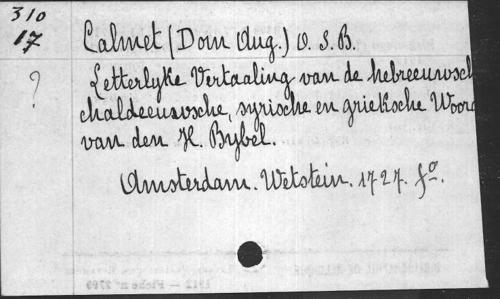 310
17
Calmet (Dom Aug.) O. S. B.
?
Letterlyke Vertaaling van de hebreeuwsch
chaldeeuwsche, syrische en grieksche Woord
van den H. Bybel.
Amsterdam. Wetstein. 1727. fo.